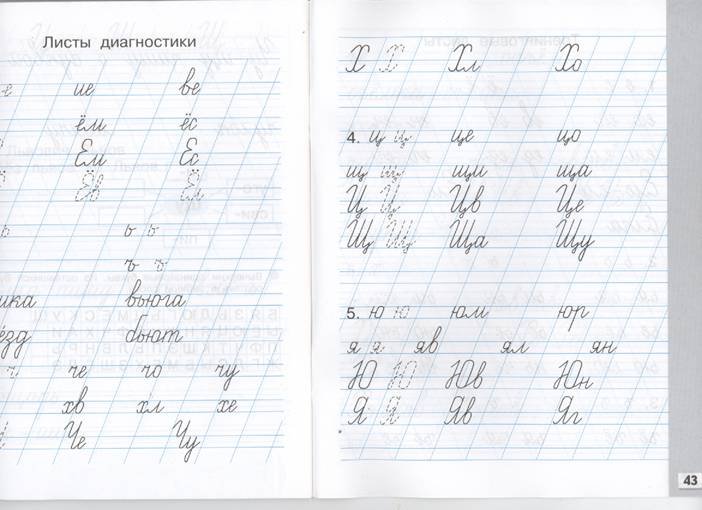 Листы диагностики
е ие ве
ём ёс
Ем Ес
Ёв Ёл
ь ь ь
ъ ъ
ика вьюга
ёзд бьют
ч че чо чу
хв хл хе
Че Чу
Х Х Хл Хо
4. ц ц це цо
щ щ щи ща
Ц Ц Цв Це
Щ Щ Ща Щу
5. ю ю юм юр
я я яв ял ян
Ю Ю Юв Юн
Я Я Яв Яг
43